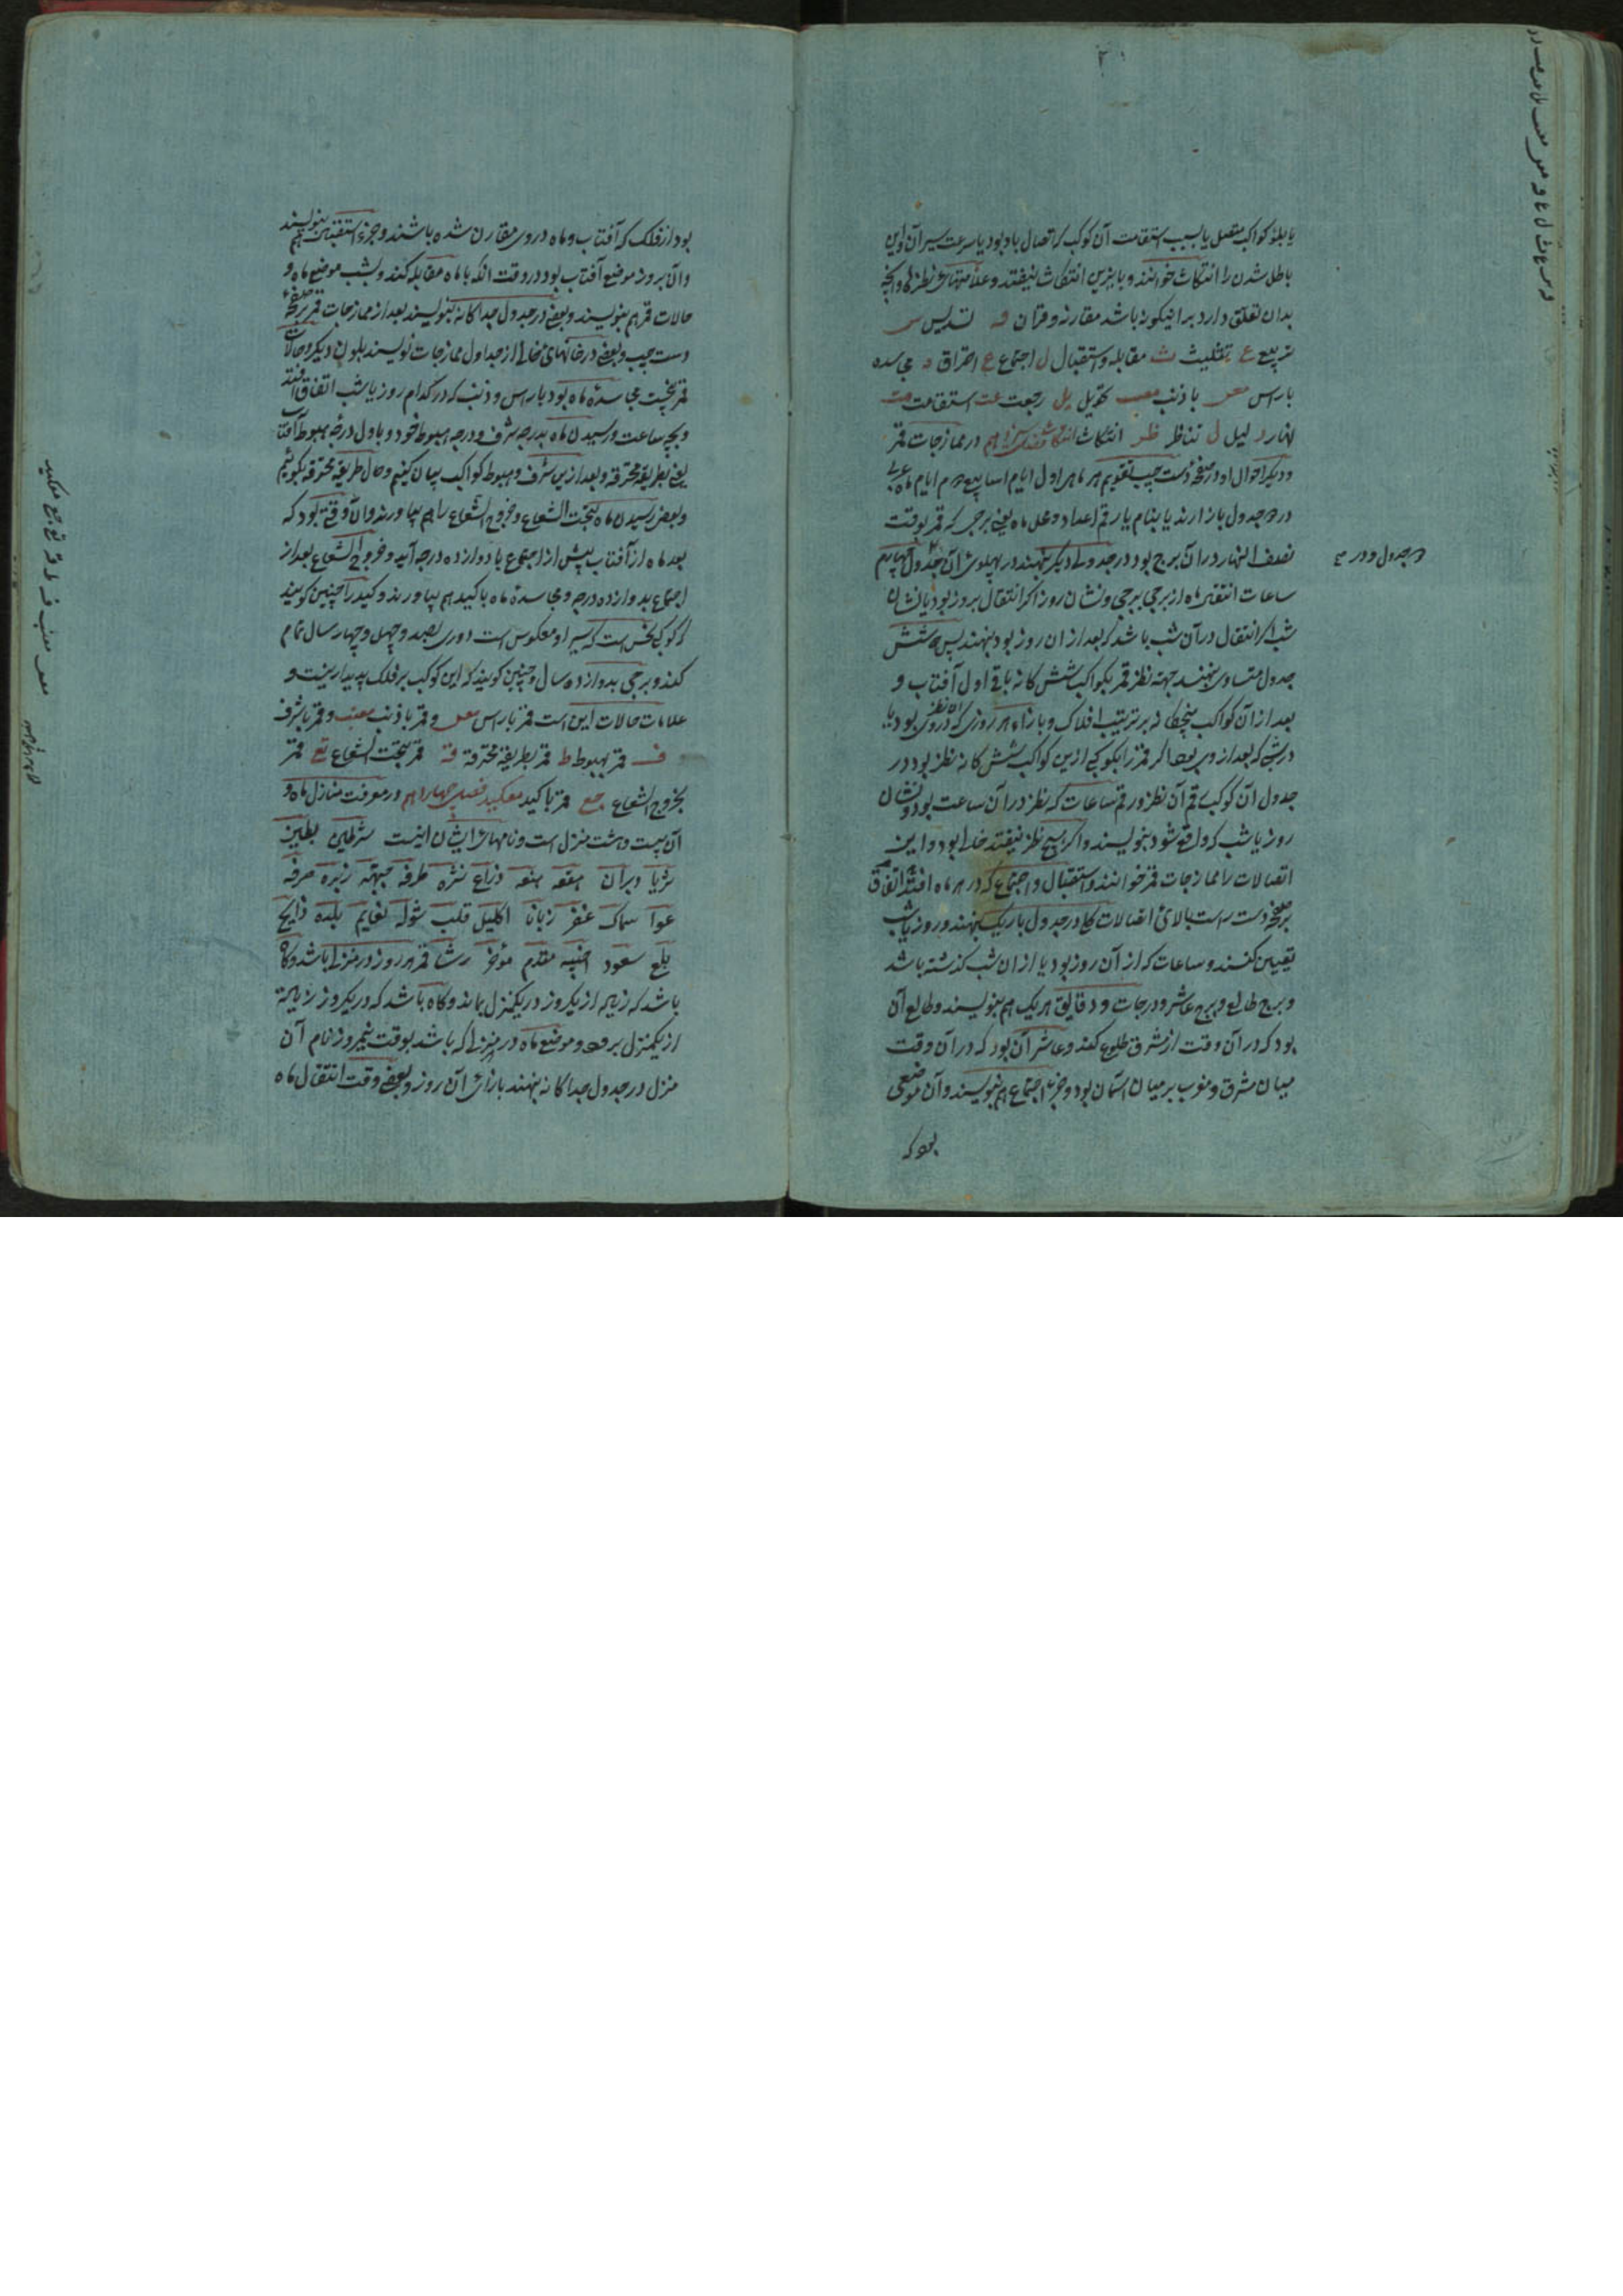 یا بلدو کواکب متصل یا بسبب استقامت آن کوکب که اتصال باو بود یا سرعت سیر آن و این
باطل شدن را انتکاث خوانند و باینزین انتکاث نیفتد و علامتهای نظرها و آنچه
بدان تعلق دارد برانیکونه باشد مقارنه و قران ـه تسدیس س
تربیع ع تثلیث ث مقابله و استقبال ل اجتماع ع احتراق ـه مجاسده
باراس معس باذنب معب تحویل یل رجعت عت استقامت مت
نهار ر لیل ل تناظر ظر انتکاث انتکاث فصل سیزدهم در ممازجات قمر
و دیگر احوال او در صفحه دست چپ تقویم هر ماهر اول ایام اسابیع هم ایام ماه عربی
در جدول باز ارند یا بنام یا رقم اعداد و محل ماه یعنی برجی که قمر بوقت
نصف النهار در آن برج بود در جدولی دیگر بنهند در پهلوی آن جدول چهارم
ساعات انتقال ماه از برجی ببرجی و نشان روز اگر انتقال بروز بود یا نشان
شب اگر انتقال در آن شب باشد که بعد از ان روز بود بنهند پس شش
جدول متساوی بنهند جهته نظر قمر بکواکب شش کانه باقی اول آفتاب و
بعد از آن کواکب پنجکانه بر ترتیب افلاک و بازاء هر روزی که در وی نظر بود یا
در شبی که بعد از وی بود اگر قمر را بکوکبی ازین کواکب شش کانه نظر بود در
جدول آن کوکب رقم آن نظر و رقم ساعات که نظر در آن ساعت بود و نشان
روز یا شب که واقع شود بنویسند و اگر هیچ نظر نیفتد خالی بود و این
اتصالات را ممازجات قمر خوانند و استقبال و اجتماع که در هر ماه افتد اتفاق
بر صفحه دست راست بالای اتصالات در جدول باریک بنهند و روز یا شب
تعیین کنند و ساعات که از آن روز بود یا از ان شب گذشته باشد
و برج طالع و برج عاشر و درجات و دقایق هر یک هم بنویسند و طالع آن
بود که در آن وقت از مشرق طلوع کند و عاشر آن بود که در آن وقت
میان مشرق و مغرب بر میان آسمان بود و جزء اجتماع هم بنویسند و آن موضعی
بود که
بود از فلک که آفتاب و ماه در وی مقارن شده باشند و جزء استقبال هم بنویسند
و آن بروز موضع آفتاب بود در وقت انکه با ماه مقابله کند و بشب موضع ماه و
حالات قمر هم بنویسند و بعضی در جدول جداکانه بنویسند بعد از ممازجات قمر بر صفحه
دست چپ و بعضی در خانهای خالی از جداول ممازجات نویسند بلون دیگر و حالات
قمر نخست مجاسده ماه بود باراس و ذنب که در کدام روز یا شب اتفاق افتد
و بچه ساعت و رسیدن ماه بدرجه شرف و درجه هبوط خود و باول درجه هبوط آفتاب
یعنی بطریقه محترقه و بعد ازین شرف و هبوط کواکب بیان کنیم و حال طریقه محترقه بکوئیم
و بعضی رسیدن ماه بتحت الشعاع و خروج الشعاع را هم بیاورند و آن وقتی بود که
بعد ماه از آفتاب پیش از اجتماع با دوازده درجه آید و خروج الشعاع بعد از
اجتماع بدوازده درجه و مجاسده ماه با کید هم بیاورند و کید را چنین کویند
که کوکبی نحس است که سیر او معکوس است دوری بصد و چهل و چهار سال تمام
کند و برجی بدوازده سال و چنین کویند که این کوکب بر فلک پدیدار نیست و
علامات حالات این است قمر باراس معس و قمر باذنب معنب و قمر بشرف
ف قمر بهبوط ط قمر بطریقه محترقه قه قمر بتحت الشعاع تع قمر
بخروج الشعاع جع قمر با کید معکید فصل چهاردهم در معرفت منازل ماه و
آن بیست و هشت منزل است و نامهای ایشان اینست شرطین بطین
ثریا دبران هقعه هنعه ذراع نثره طرفه جبهه زبره صرفه
عوا سماک غفر زبانا اکلیل قلب شوله نعایم بلده ذابح
بلع سعود اخبیه مقدم مؤخر رشا قمر هر روز در منزلی باشد و گاه
باشد که زیاده از یکروز در یکمنزل بماند و کاه باشد که در یکروز زیاده
از یکمنزل برود و موضع ماه در منزلی که باشد بوقت نیمروز نام آن
منزل در جدول جداکانه بنهند بازای آن روز و بعضی وقت انتقال ماه
در جدول و در
معس معنب ف ط قه تع جع معکید